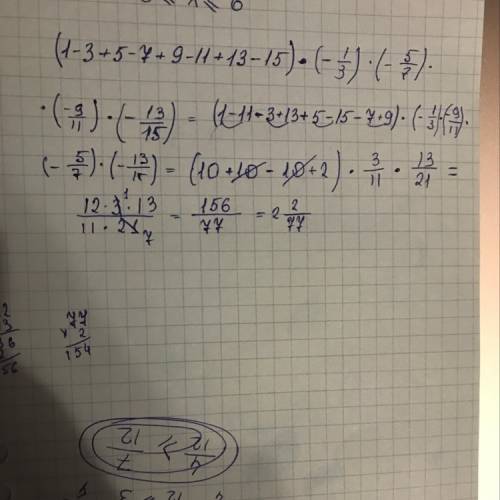 (1-3+5-7+9-11+13-15)·(-1/3)·(-5/7)·
·(-9/11)·(-13/15) = (1-11-3+13+5-15-7+9)·(-1/3)·(-9/11)·
(-5/7)·(-13/15) = (10+10-10+2)·3/11·13/21 =
12·3·13/11·21 = 156/77 = 2 2/77
1
7
77
2
154
4/12 ⩾ 7/12